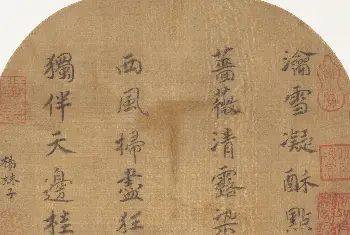 瀹雪凝酥點
薔薇清露染
西風掃盡狂
獨伴天邊桂
楊妹子